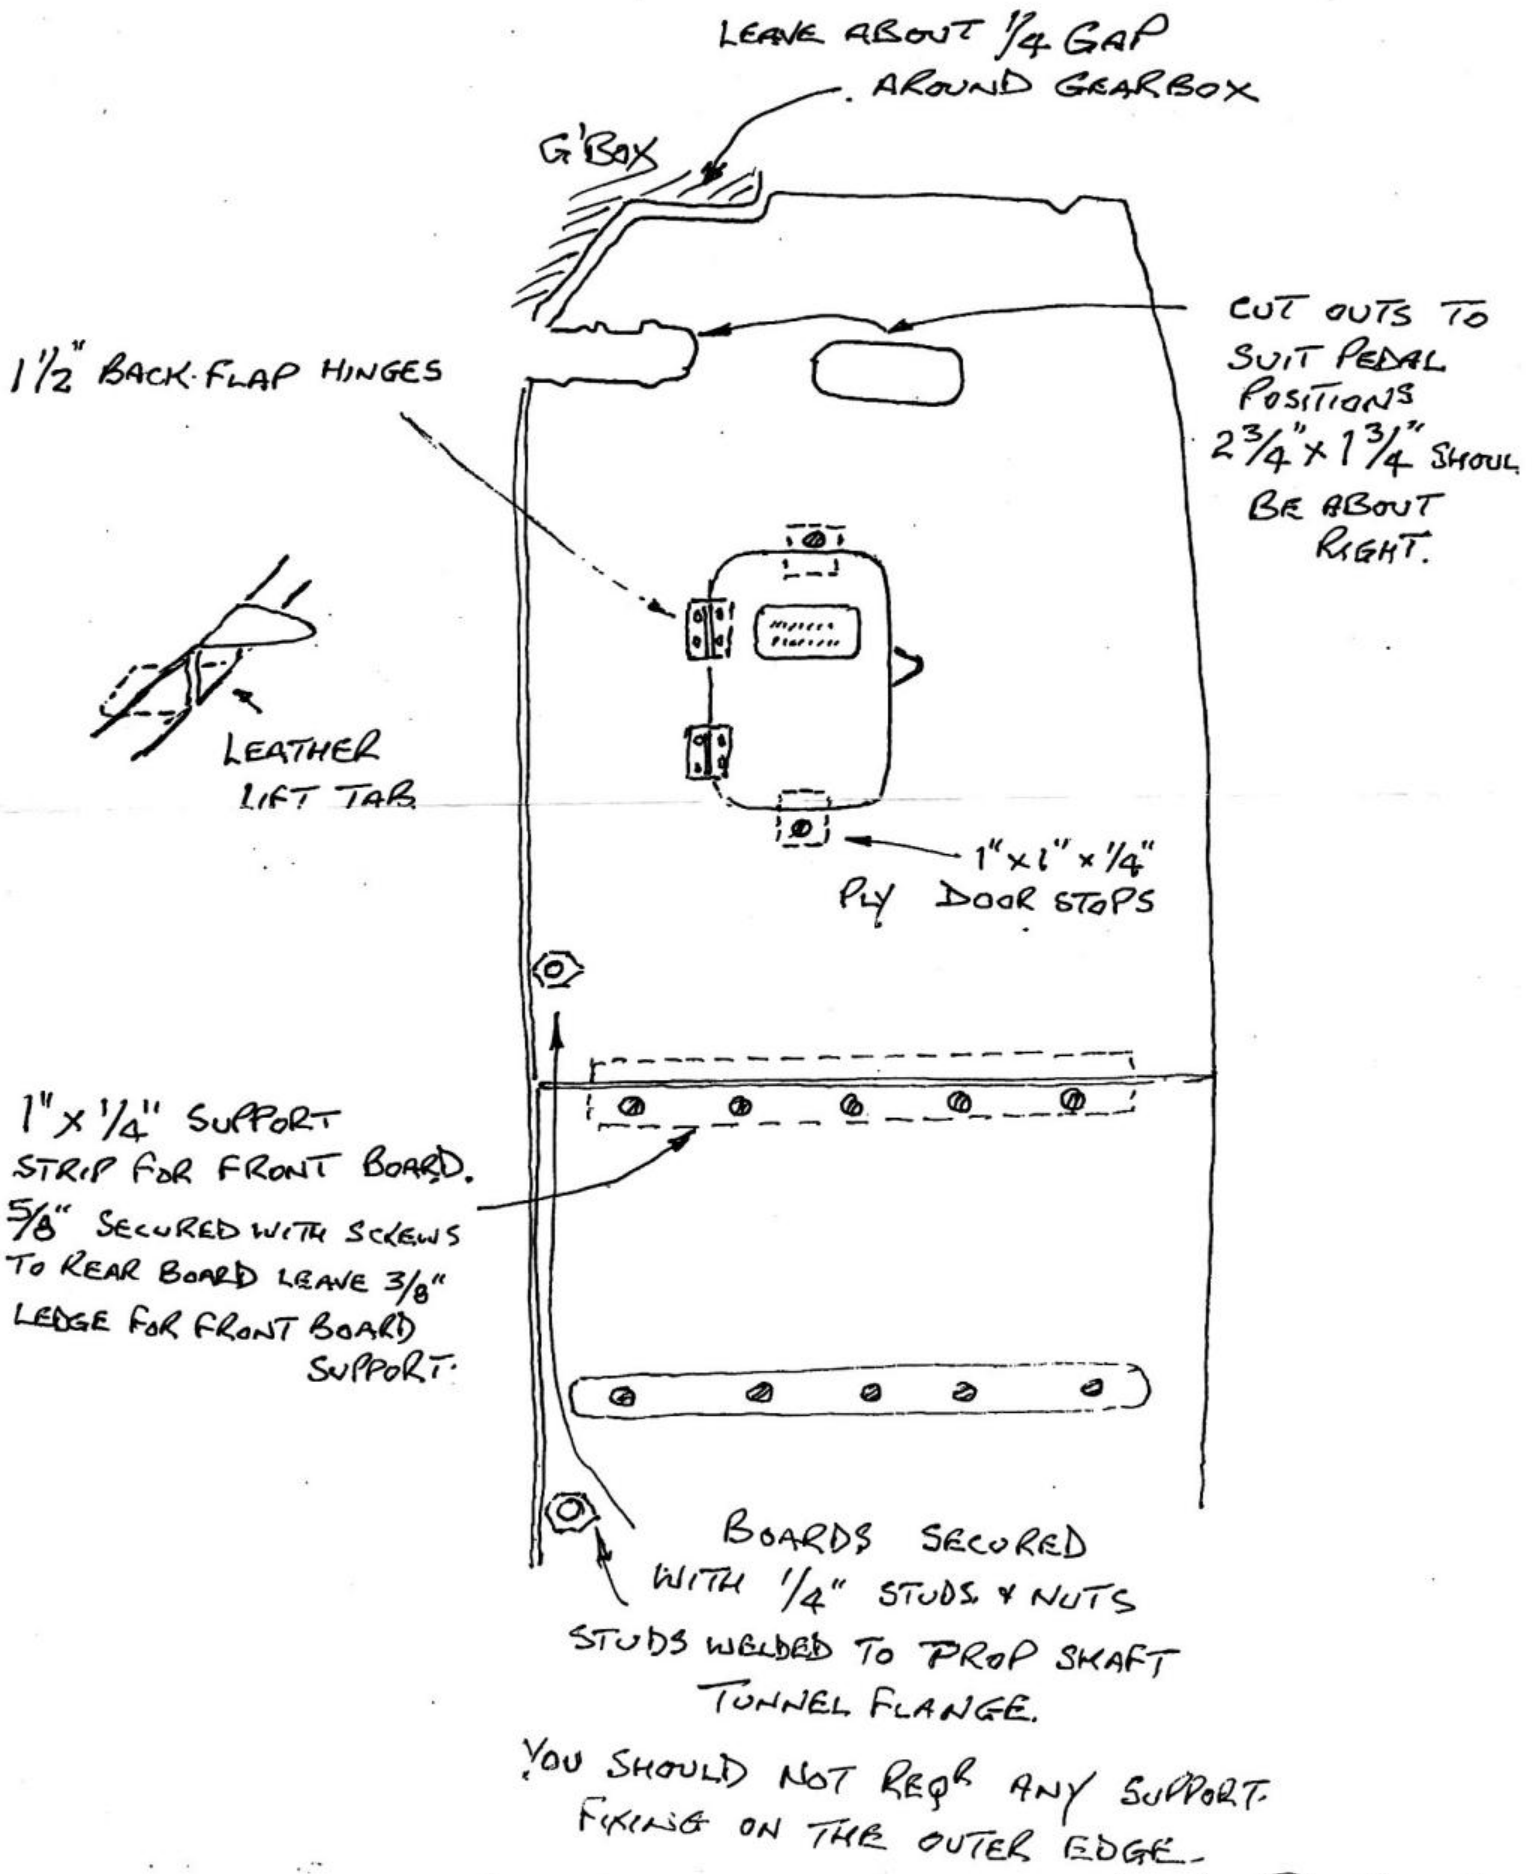 LEAVE ABOUT 1/4 GAP
AROUND GEARBOX
G'BOX
1 1/2" BACK-FLAP HINGES
CUT OUTS TO
SUIT PEDAL
POSITIONS
2 3/4" x 1 3/4" SHOUL
BE ABOUT
RIGHT.
LEATHER
LIFT TAB
1" x 1" x 1/4"
PLY DOOR STOPS
1" x 1/4" SUPPORT
STRIP FOR FRONT BOARD.
5/8" SECURED WITH SCREWS
TO REAR BOARD LEAVE 3/8"
LEDGE FOR FRONT BOARD
SUPPORT.
BOARDS SECURED
WITH 1/4" STUDS & NUTS
STUDS WELDED TO PROP SHAFT
TUNNEL FLANGE.
YOU SHOULD NOT REQR ANY SUPPORT.
FIXING ON THE OUTER EDGE.